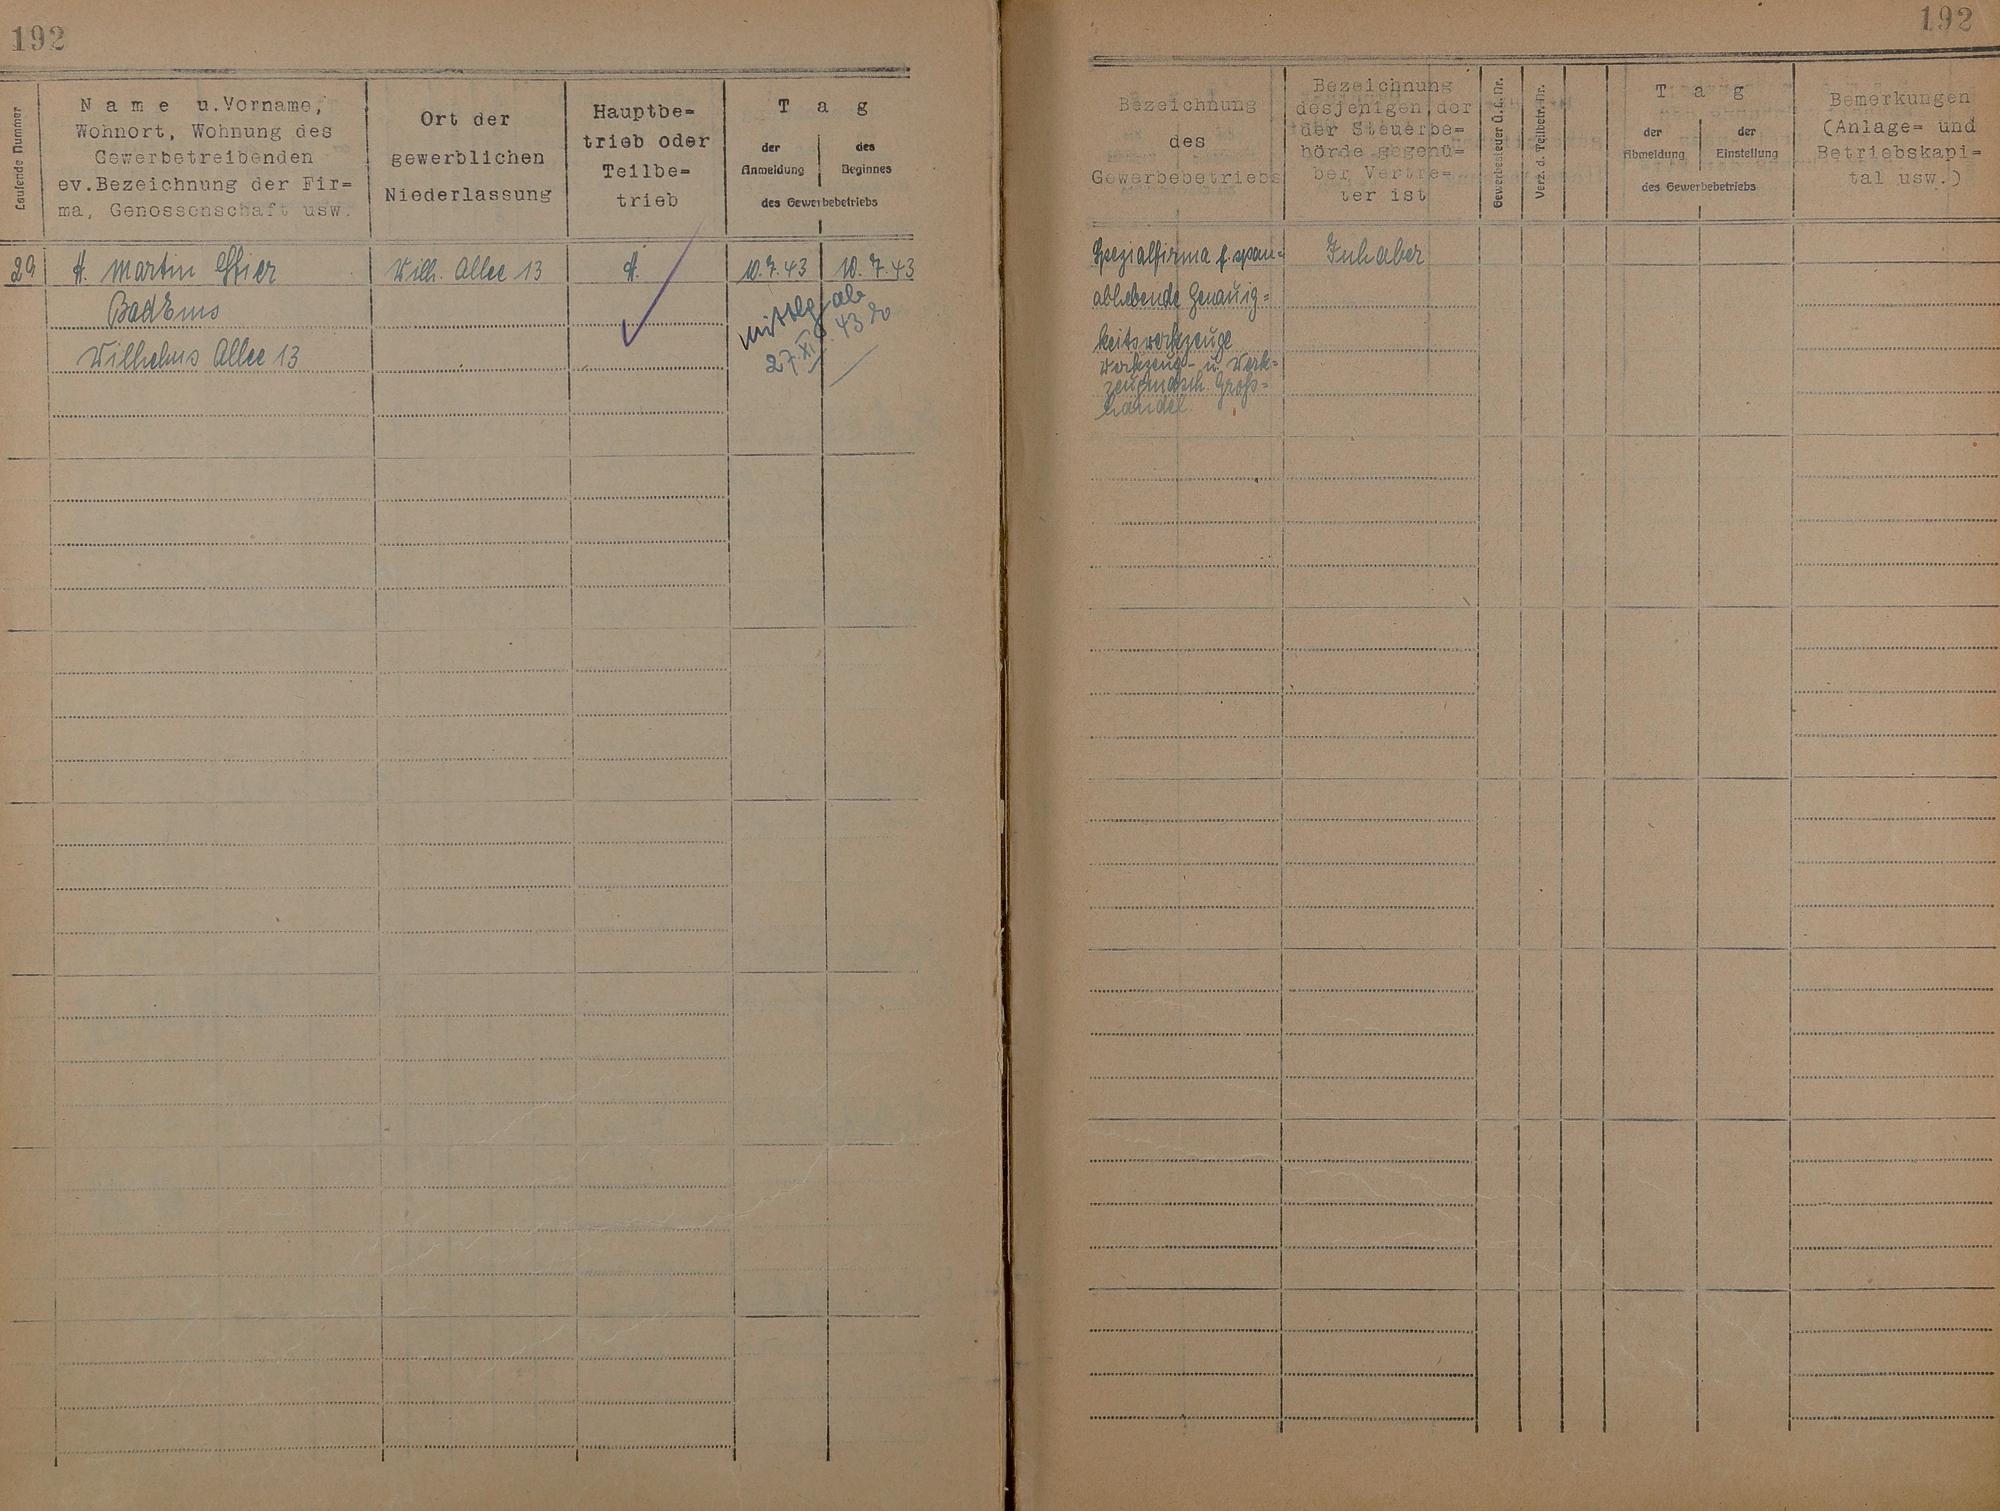 192
Laufende Nummer
Name u. Vorname,
Wohnort, Wohnung des
Gewerbetreibenden
ev. Bezeichnung der Fir=
ma, Genossenschaft usw.
Ort der
gewerblichen
Niederlassung
Hauptbe=
trieb oder
Teilbe=
trieb
Tag
der
Anmeldung
des
Beginnes
des Gewerbebetriebs
29
H. Martin
Bad Ems
Wilhelms Allee 13
Wilh. Allee 13
H.
10.7.43
10.7.43
ab
27. XI. 43
192
Bezeichnung
des
Gewerbebetriebs
Bezeichnung
desjenigen, der
der Steuerbe=
hörde gegenü=
ber Vertre=
ter ist
Gewerbesteuer Ü.L.Nr.
Verz. d. Teilbetr. Nr.
Tag
der
Abmeldung
der
Einstellung
des Gewerbebetriebs
Bemerkungen
(Anlage= und
Betriebskapi=
tal usw.)
Spezialfirma f. span=
abhebende Genauig=
keitswerkzeuge
Werkzeug- u. Werk=
zeugmasch. Groß=
handel.
Inhaber